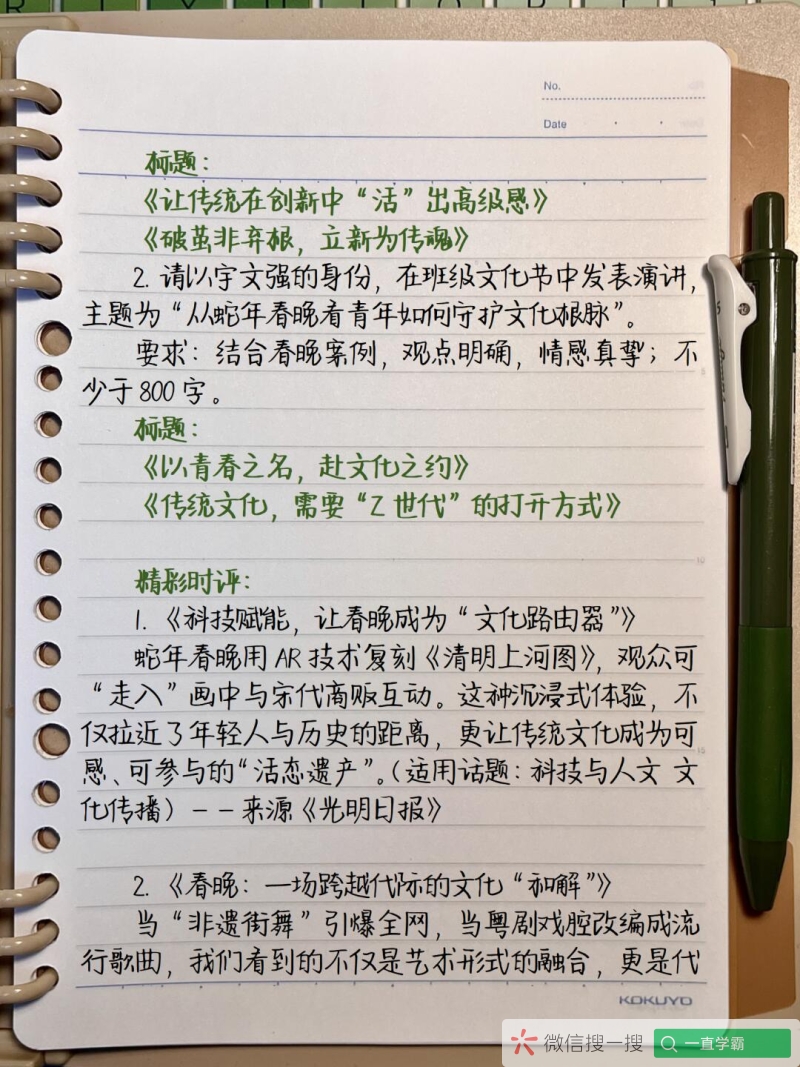 No.
Date
标题：
《让传统在创新中“活”出高级感》
《破茧非弃根，立新为传魂》
2. 请以宇文强的身份，在班级文化节中发表演讲，
主题为“从蛇年春晚看青年如何守护文化根脉”。
要求：结合春晚案例，观点明确，情感真挚；不
少于800字。
标题：
《以青春之名，赴文化之约》
《传统文化，需要“Z世代”的打开方式》
精彩时评：
1. 《科技赋能，让春晚成为“文化路由器”》
蛇年春晚用AR技术复刻《清明上河图》，观众可
“走入”画中与宋代商贩互动。这种沉浸式体验，不
仅拉近了年轻人与历史的距离，更让传统文化成为可
感、可参与的“活态遗产”。（适用话题：科技与人文 文
化传播）——来源《光明日报》
2. 《春晚：一场跨越代际的文化“和解”》
当“非遗街舞”引爆全网，当粤剧戏腔改编成流
行歌曲，我们看到的不仅是艺术形式的融合，更是代
KOKUYO
微信搜一搜
一直学霸